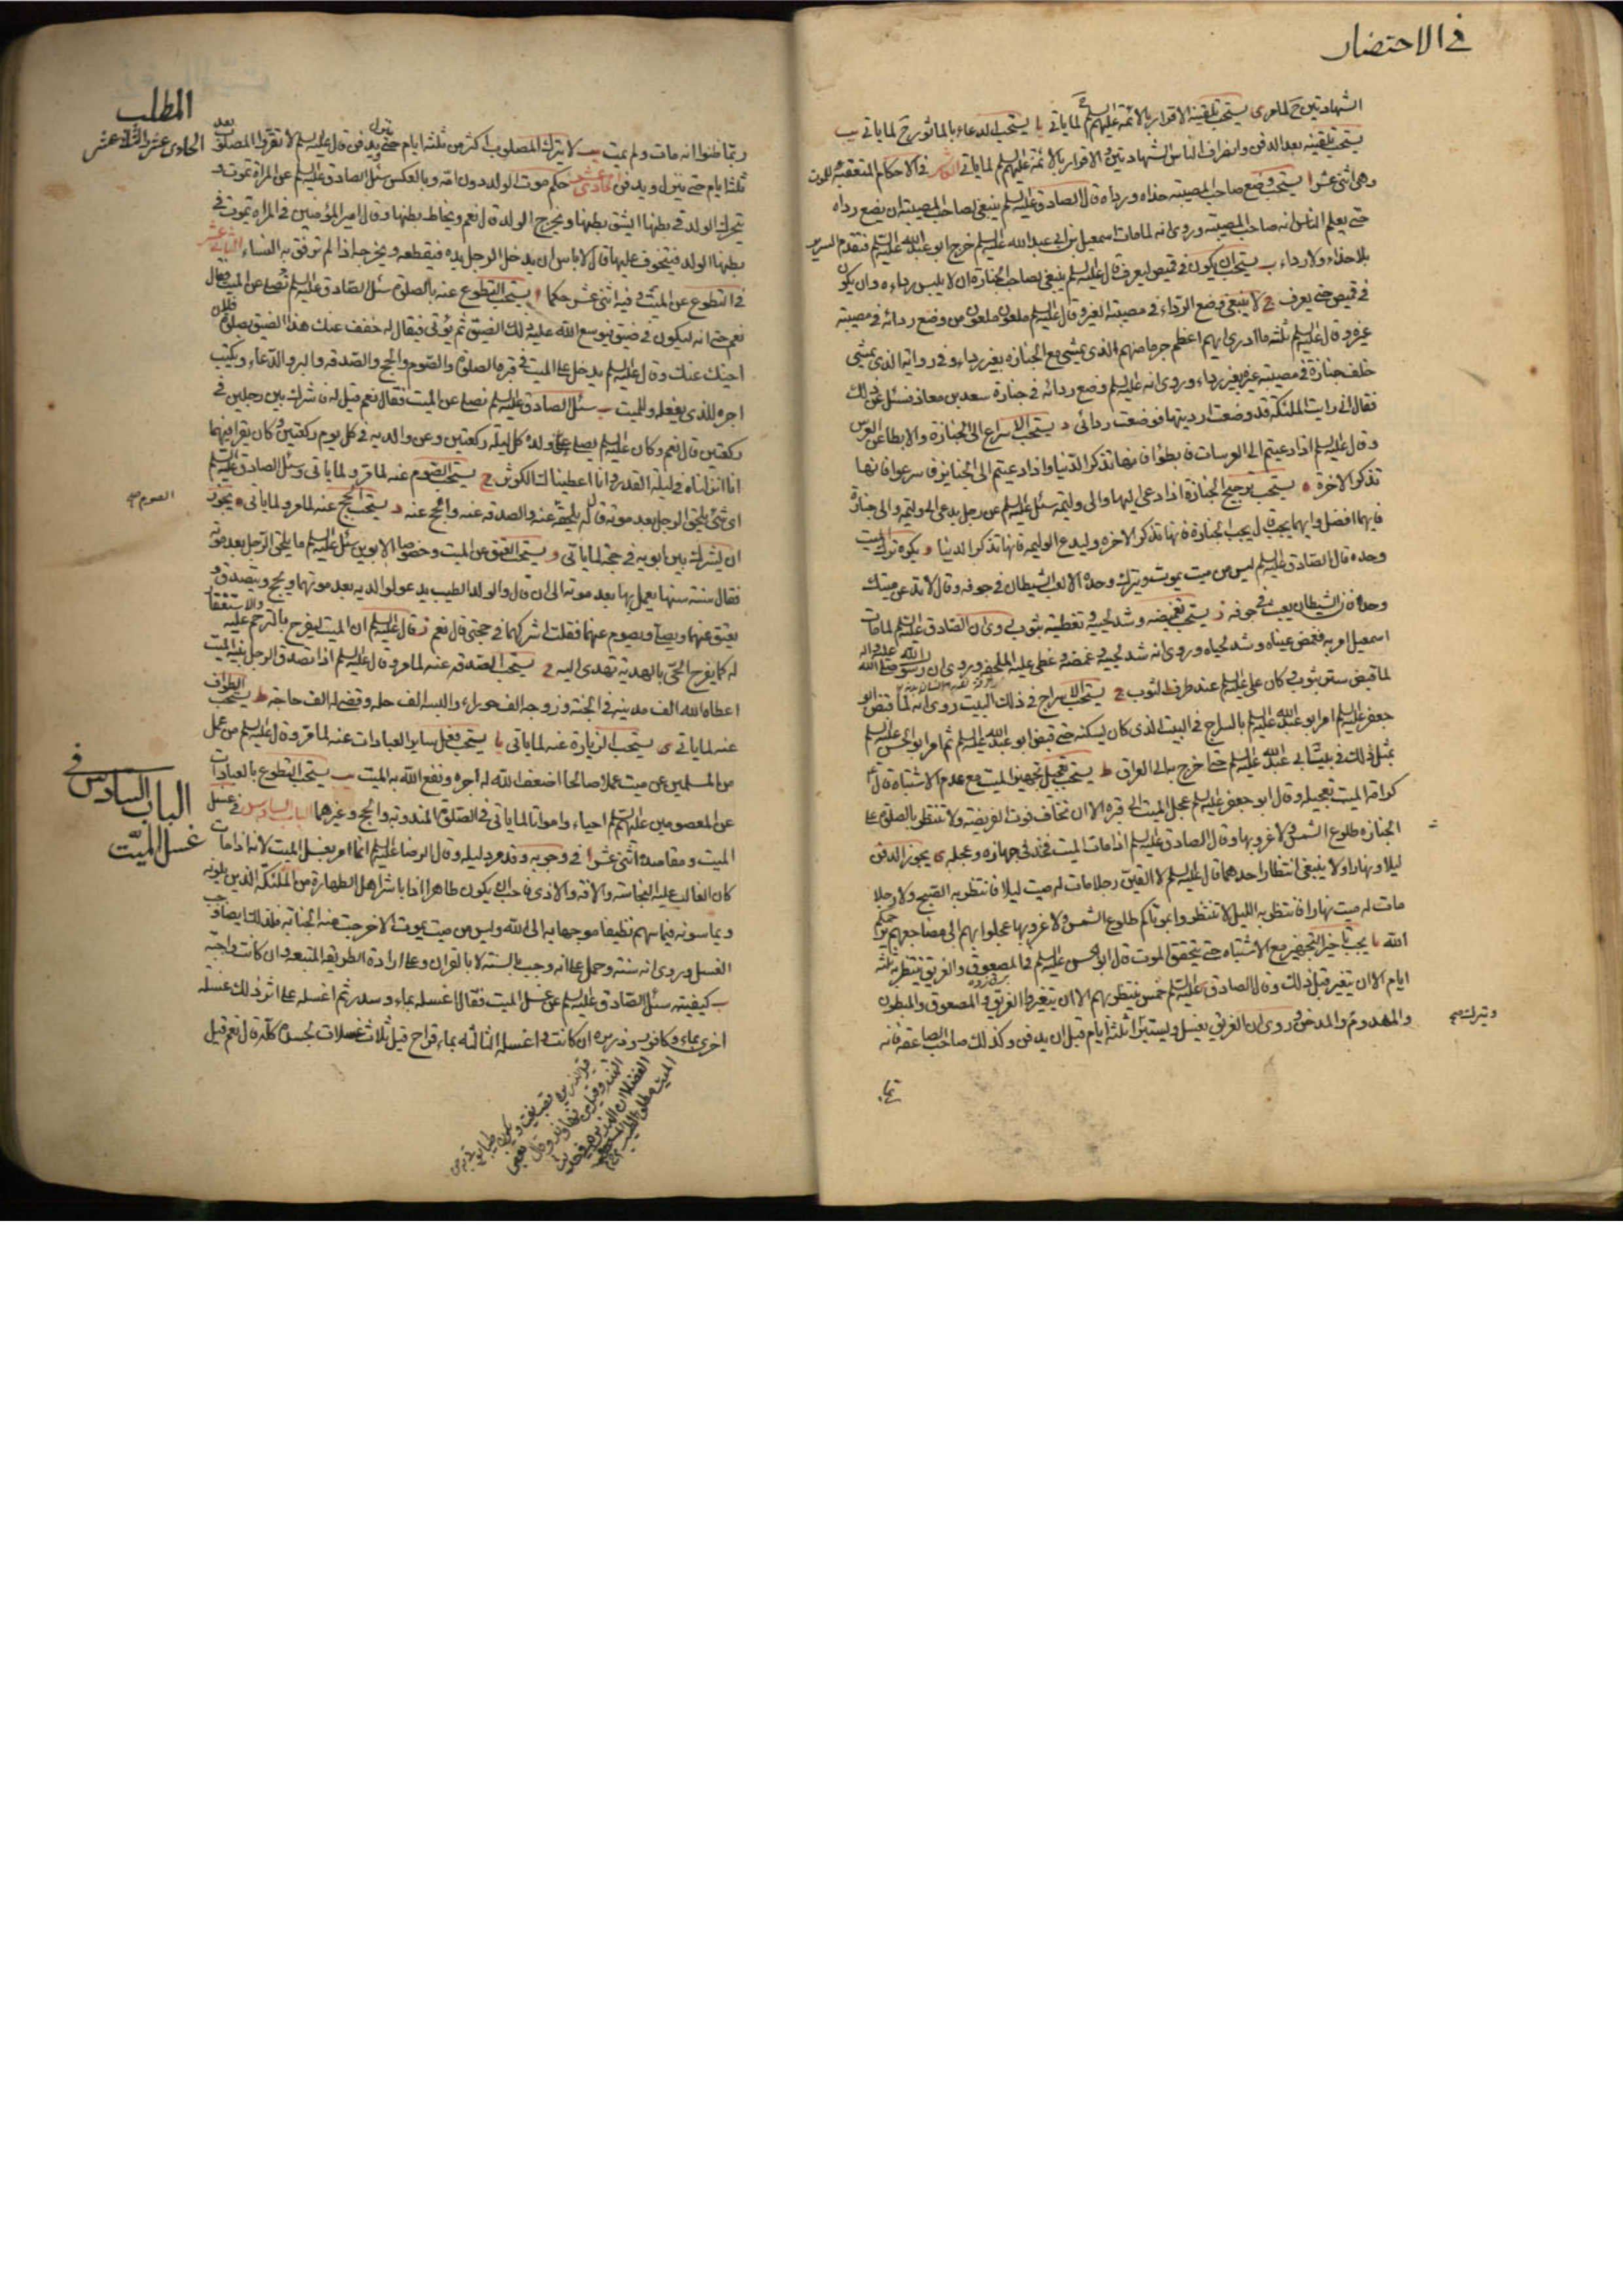 في الاحتضار
الشهادتين ح لما مر ى يستحب تلقينه الاقرار بالائمة عليهم السلم لما ياتي يا يستحب الدعاء بالماثور ح لما ياتي يب
يستحب تلقينه بعد الدفن وانصراف الناس الشهادتين والاقرار بالائمة عليهم السلم لما ياتي في الاحكام المتعقبة للموت
وهي اثنى عشر ا يستحب وضع صاحب المصيبة حذاه ورداه قال الصادق عليه السلم ينبغي لصاحب المصيبة ان يضع رداه
حتى يعلم الناس انه صاحب المصيبة وروى انه لما مات اسمعيل بن ابي عبد الله عليه السلم خرج ابو عبد الله عليه السلم فتقدم السرير
بلا حذاء ولا رداء ب يستحب ان يكون في قميص ليعرف قال عليه السلم ينبغي لصاحب الجنازة ان لا يلبس رداءه وان يكون
في قميص حتى يعرف ج لا ينبغي وضع الرداء في مصيبة الغير وقال عليه السلم ملعون ملعون من وضع ردائه في مصيبة
غيره وقال عليه السلم ثلثة ما ادرى ايهم اعظم جرما منهم الذي يمشي مع الجنازة بغير رداء وفي رواية الذي يمشي
خلف جنازة في مصيبة غيره بغير رداء وروى انه عليه السلم وضع ردائه في جنازة سعد بن معاذ فسئل عن ذلك
فقال اني رايت الملئكة قد وضعت ارديتها فوضعت ردائي د يستحب الاسراع الى الجنازة والابطا عن العرس
وقال عليه السلم اذا دعيتم الى العرسات فابطؤا فانها تذكر الدنيا واذا دعيتم الى الجنايز فاسرعوا فانها
تذكر الاخرة ه يستحب ترجيح الجنازة اذا دعى اليها والى وليمة سئل عليه السلم عن رجل يدعى الى وليمة والى جنازة
فايهما افضل وايهما يجيب قال يجيب الجنازة فانها تذكر الاخرة وليدع الوليمة فانها تذكر الدنيا و يكره ترك الميت
وحده قال الصادق عليه السلم ليس من ميت يموت ويترك وحده الا لعب الشيطان في جوفه وقال لا تدعن ميتك
وحده فان الشيطان يعبث في جوفه ز يستحب تغميضه وشد لحييه وتغطيته بثوب لروى ان الصادق عليه السلم لما مات
اسمعيل امر به فغمض عيناه وشد لحياه وروى انه شد لحييه وغمضه وغطى عليه الملحفة وروى ان رسول الله صلى الله عليه واله
لما قبض ستر بثوب وكان على عليه السلم عند طرف الثوب ح يستحب الاسراج في ذلك البيت روى انه لما قبض ابو
جعفر عليه السلم امر ابو عبد الله عليه السلم بالسراج في البيت الذي كان يسكنه حتى قبض ابو عبد الله عليه السلم ثم امر ابو الحسن عليه السلم
بمثل ذلك في بيت ابي عبد الله عليه السلم حتى خرج به الى العراق ط يستحب تعجيل تجهيز الميت مع عدم الاشتباه قال
كرامة الميت تعجيله وقال ابو جعفر عليه السلم عجل الميت الى قبره الا ان تخاف فوت الفريضة ولا تنتظر بالصلوة على
الجنازة طلوع الشمس ولا غروبها وقال الصادق عليه السلم اذا مات الميت فخذ في جهازه وعجله ى يجوز الدفن
ليلا ونهارا ولا ينبغي انتظار احدهما قال عليه السلم لا الفين رجلا مات له ميت ليلا فانتظر به الصبح ولا رجلا
مات له ميت نهارا فانتظر به الليل لا تنتظروا بموتاكم طلوع الشمس ولا غروبها عجلوا بهم الى مضاجعهم يرحمكم
الله يا يجب تاخير التجهيز مع الاشتباه حتى يتحقق الموت قال ابو الحسن عليه السلم في المصعوق والغريق ينتظر به ثلثة
ايام الا ان يتغير قبل ذلك وقال الصادق عليه السلم خمس ينتظر بهم الا ان يتغيروا الغريق والمصعوق والمبطون
والمهدوم والمدخن وروى ان الغريق يغسل ويستبرا ثلثة ايام قبل ان يدفن وكذلك صاحب الصاعقة فانه
ويترك صح
ربما
المطلب
الحادى عشر والثانى عشر
ربما ظنوا انه مات ولم يمت يب لا يترك المصلوب اكثر من ثلثة ايام حتى ينزل ويدفن قال عليه السلم لا تقروا المصلوب بعد
ثلثة ايام حتى ينزل ويدفن الحادى عشر حكم موت الولد دون امه وبالعكس سئل الصادق عليه السلم عن المراة تموت و
يتحرك الولد في بطنها ايشق بطنها ويخرج الولد قال نعم ويخاط بطنها وقال امير المؤمنين في المراة يموت في
بطنها الولد فيتخوف عليها قال لا باس ان يدخل الرجل يده فيقطعه ويخرجه اذا لم ترفق به النساء الثاني عشر
في التطوع عن الميت وفيه اثنى عشر حكما ا يستحب التطوع عنه بالصلوة سئل الصادق عليه السلم نصلى عن الميت فقال
نعم حتى انه ليكون في ضيق فيوسع الله عليه ذلك الضيق ثم يؤتى فيقال له خفف عنك هذا الضيق بصلوة فلان
اخيك عنك وقال عليه السلم يدخل على الميت في قبره الصلوة والصوم والحج والصدقة والبر والدعاء ويكتب
اجره للذي يفعله وللميت ب سئل الصادق عليه السلم نصلى عن الميت فقال نعم قيل له فاشرك بين رجلين في
ركعتين قال نعم وكان عليه السلم يصلى عن ولده كل ليلة ركعتين وعن والديه في كل يوم ركعتين وكان يقرا فيهما
انا انزلناه في ليلة القدر وانا اعطيناك الكوثر ج يستحب الصوم عنه لما مر ولما ياتي وسئل الصادق عليه السلم
اى شئ يلحق الرجل بعد موته قال يلحقه الحج عنه والصدقة عنه والحج عنه د يستحب الحج عنه لما مر ولما ياتي ه يجوز
الصوم صح
ان يشرك بين ابويه في حجة لما ياتي و يستحب العتق عن الميت وخصوصا الابوين سئل عليه السلم ما يلحق الرجل بعد موته
فقال سنة سنها يعمل بها بعد موته الى ان قال والولد الطيب يدعو لوالديه بعد موتهما ويحج ويتصدق و
يعتق عنهما ويصلى ويصوم عنهما فقلت اشركهما في حجتى قال نعم ز قال عليه السلم ان الميت ليفرح بالترحم عليه والاستغفار
له كما يفرح الحى بالهدية تهدى اليه ح يستحب الصدقة عنه لما مر وقال عليه السلم اذا تصدق الرجل بنية الميت
اعطاه الله الف مدينة في الجنة وزوجه الف حوراء والبسه الف حلة وقضى له الف حاجة ط يستحب الطواف
عنه لما ياتي ى يستحب الزيارة عنه لما ياتي يا يستحب فعل ساير العبادات عنه لما مر وقال عليه السلم من عمل
من المسلمين عن ميت عملا صالحا اضعف الله له اجره ونفع الله به الميت يب يستحب التطوع بالعبادات
عن المعصومين عليهم السلم احياء وامواتا لما ياتي في الصلوة المندوبة والحج وغيرهما الباب السادس في غسل
الباب السادس في
غسل الميت
الميت ومقاصده اثنى عشر ا في وجوبه وقد مر دليله وقال الرضا عليه السلم انما امر بغسل الميت لانه اذا مات
كان الغالب عليه النجاسة والافة والاذى فاحب ان يكون طاهرا اذا باشر اهل الطهارة من الملئكة الذين يلونه
ويماسونه فيماسهم نظيفا موجها به الى الله وليس من ميت يموت الا خرجت منه الجنابة فلذلك ايضا وجب
الغسل وروى انه سنة وحمل على انه وجب بالسنة لا بالقران وعلى ارادة الطريقة المتبعة وان كانت واجبة
ب كيفيته سئل الصادق عليه السلم عن غسل الميت فقال اغسله بماء وسدر ثم اغسله على اثر ذلك غسلة
اخرى بماء وكافور وذريرة ان كانت واغسله الثالثة بماء قراح قيل ثلاث غسلات لجسده كله قال نعم قيل